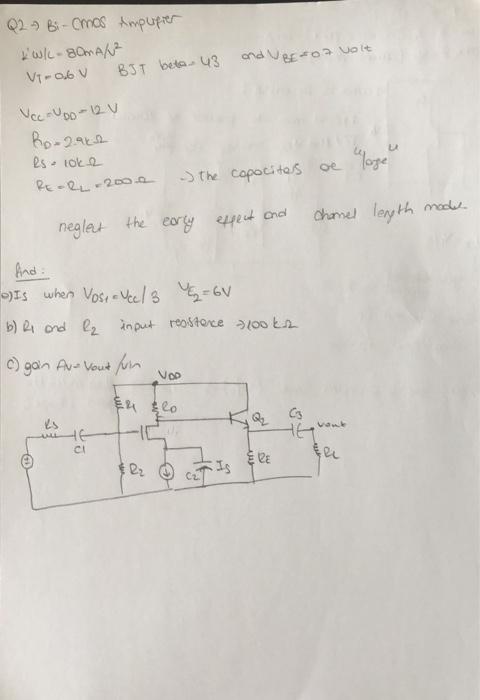 Q2 → Bi-CMOS Amplifier
k'W/L = 80mA/V²
VT = 0.6 V BJT beta = 43 and VBE = 0.7 Volt
VCC = VDD = 12 V
RD = 2.9kΩ
Rs = 10kΩ
RE = RL = 200Ω → The capacitors are "large"
neglect the early effect and channel length modul.
Find:
a) Is when VDS1 = Vcc/3 VE2 = 6V
b) R1 and R2 input resistance → 100 kΩ
c) gain Av = Vout/Vin
VDD
R1 RD
Rs Q2 C3 Vout
C1
R2 C2 Is RE RL